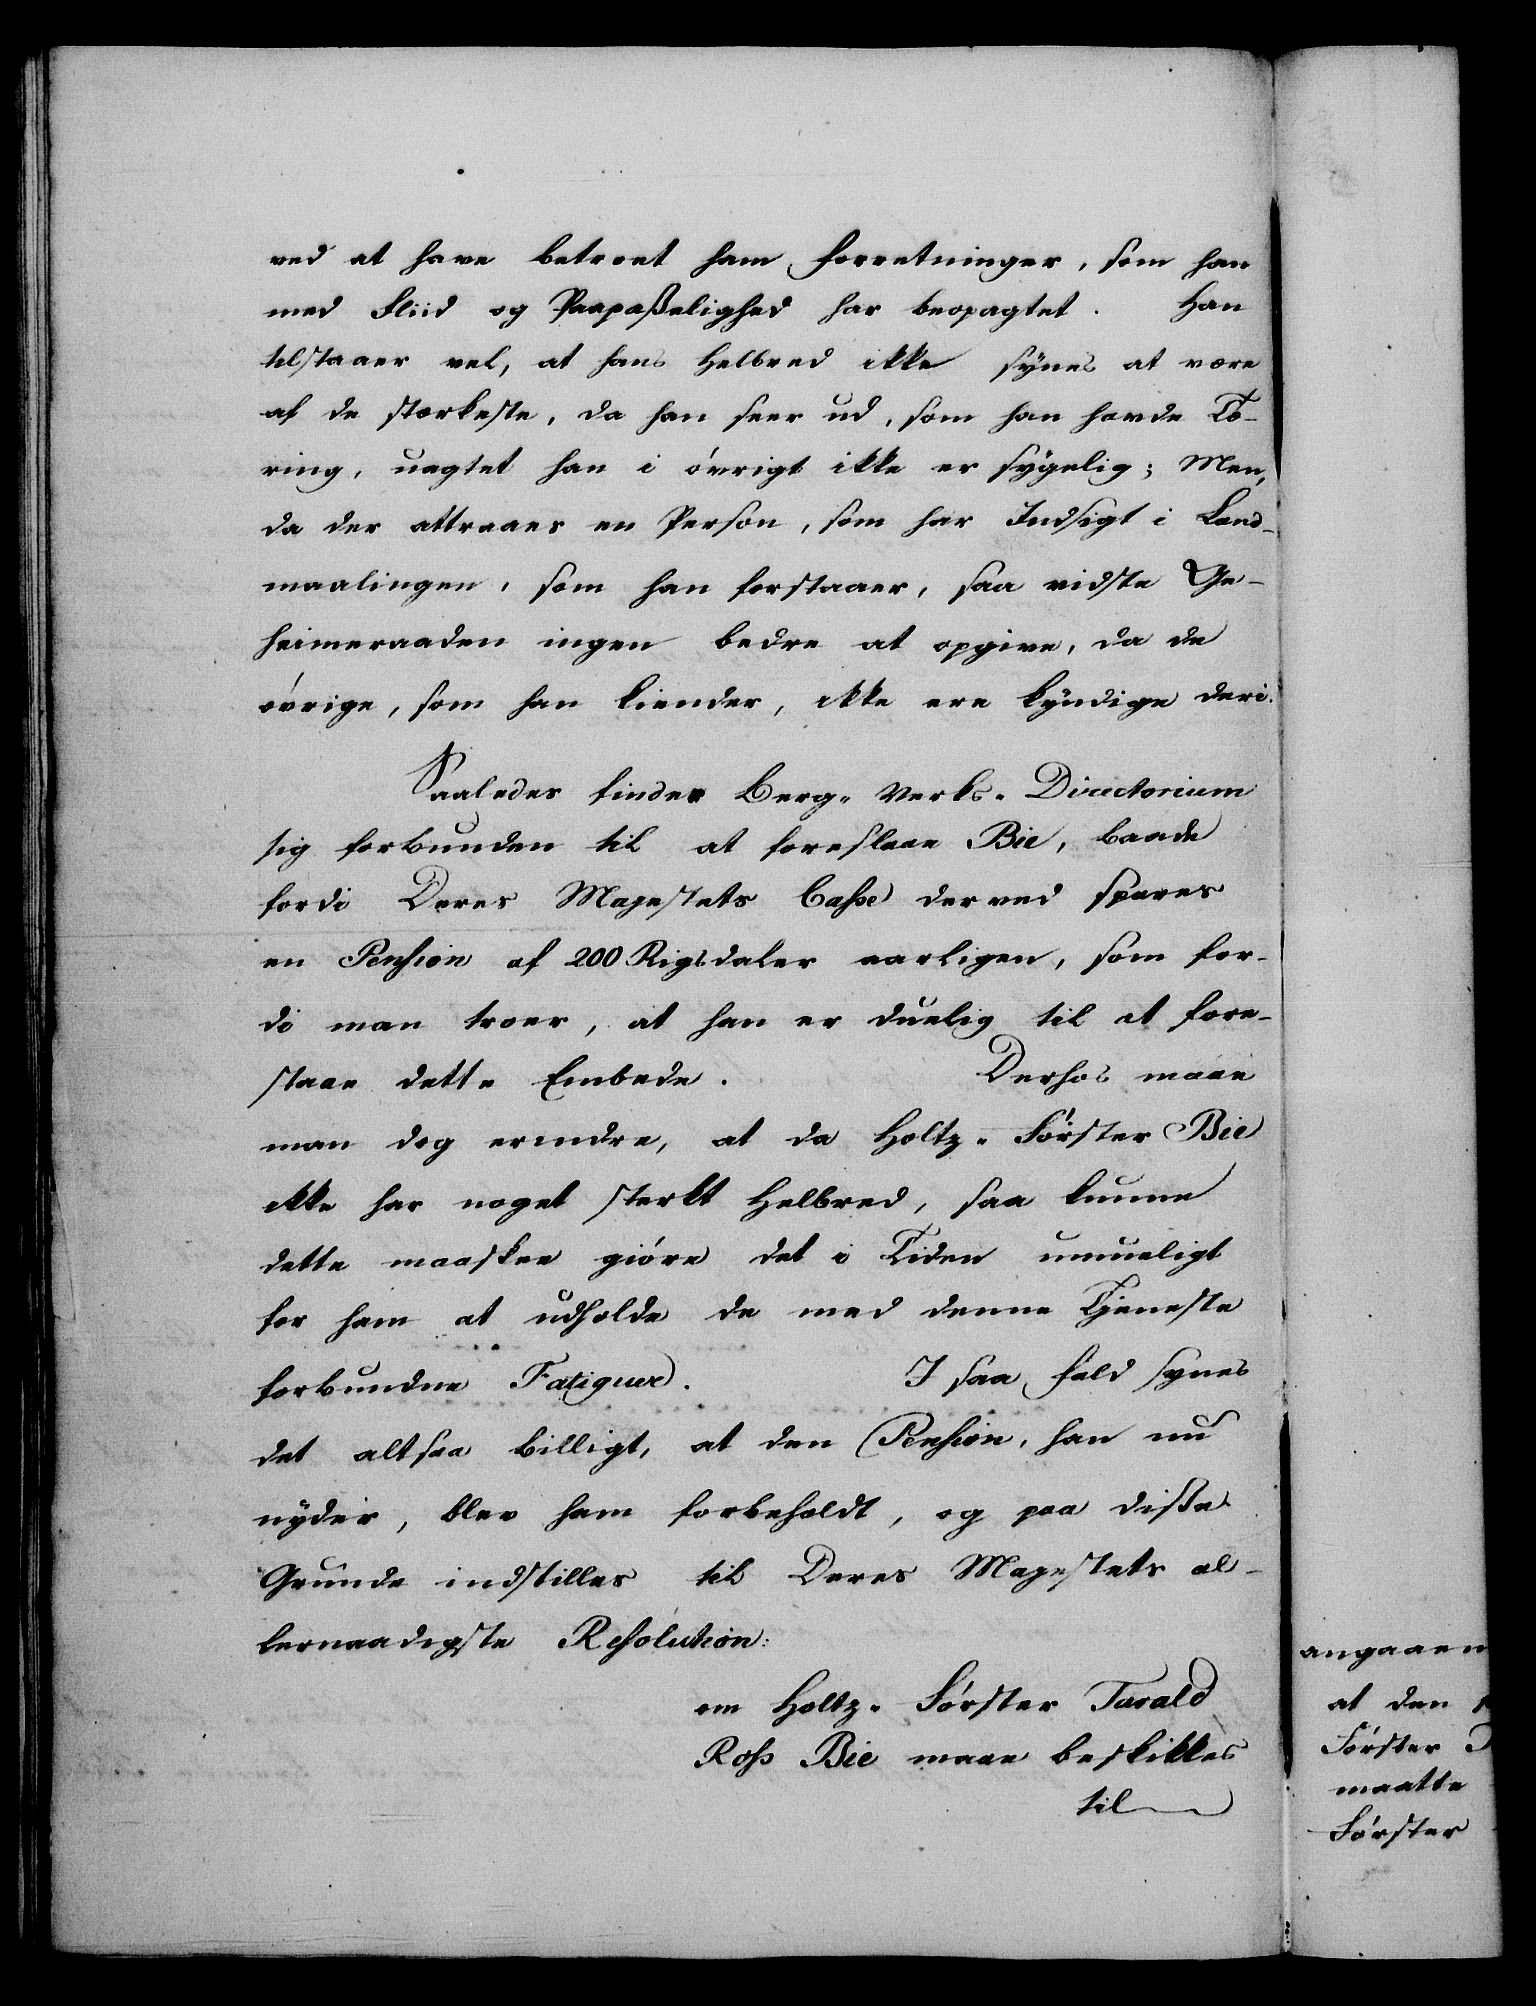 ved at have betroet ham Forretninger, som han
med Fliid og Paapaßelighed har beopagtet. Han
tilstaaer vel, at hans Helbred ikke synes at være
af de stærkeste, da han seer ud, som han havde Tæ-
ring, uagtet han i øvrigt ikke er sygelig; Men,
da der attraaes en Person, som har Indsigt i Land-
maalingen, som han forstaaer, saa vidste Ge-
heimeraaden ingen bedre at opgive, da de
øvrige, som han kiender, ikke ere kyndige deri.
Saaledes finder Berg-Verks-Directorium
sig forbunden til at foreslaae Bie, baade
fordi Deres Majestets Casse derved spares
en Pension af 200 Rigsdaler aarligen, som for-
di man troer, at han er duelig til at fore-
staae dette Embede. Derhos maae
man dog erindre, at da Holtz-Førster Bie
ikke har noget sterkt Helbred, saa kunne
dette maaskee giøre det i Tiden umueligt
for ham at udholde de med denne Tjeneste
forbundne Fatiguer. I saa Fald synes
det altsaa billigt, at den Pension, han nu
nyder, blev ham forbeholdt, og paa diße
Grunde indstilles til Deres Majestets al-
lernaadigste Resolution:
om Holtz-Førster Tarald
Ross Bie maae beskikkes
til
angaaen
at den
Førster
maatte
Førster